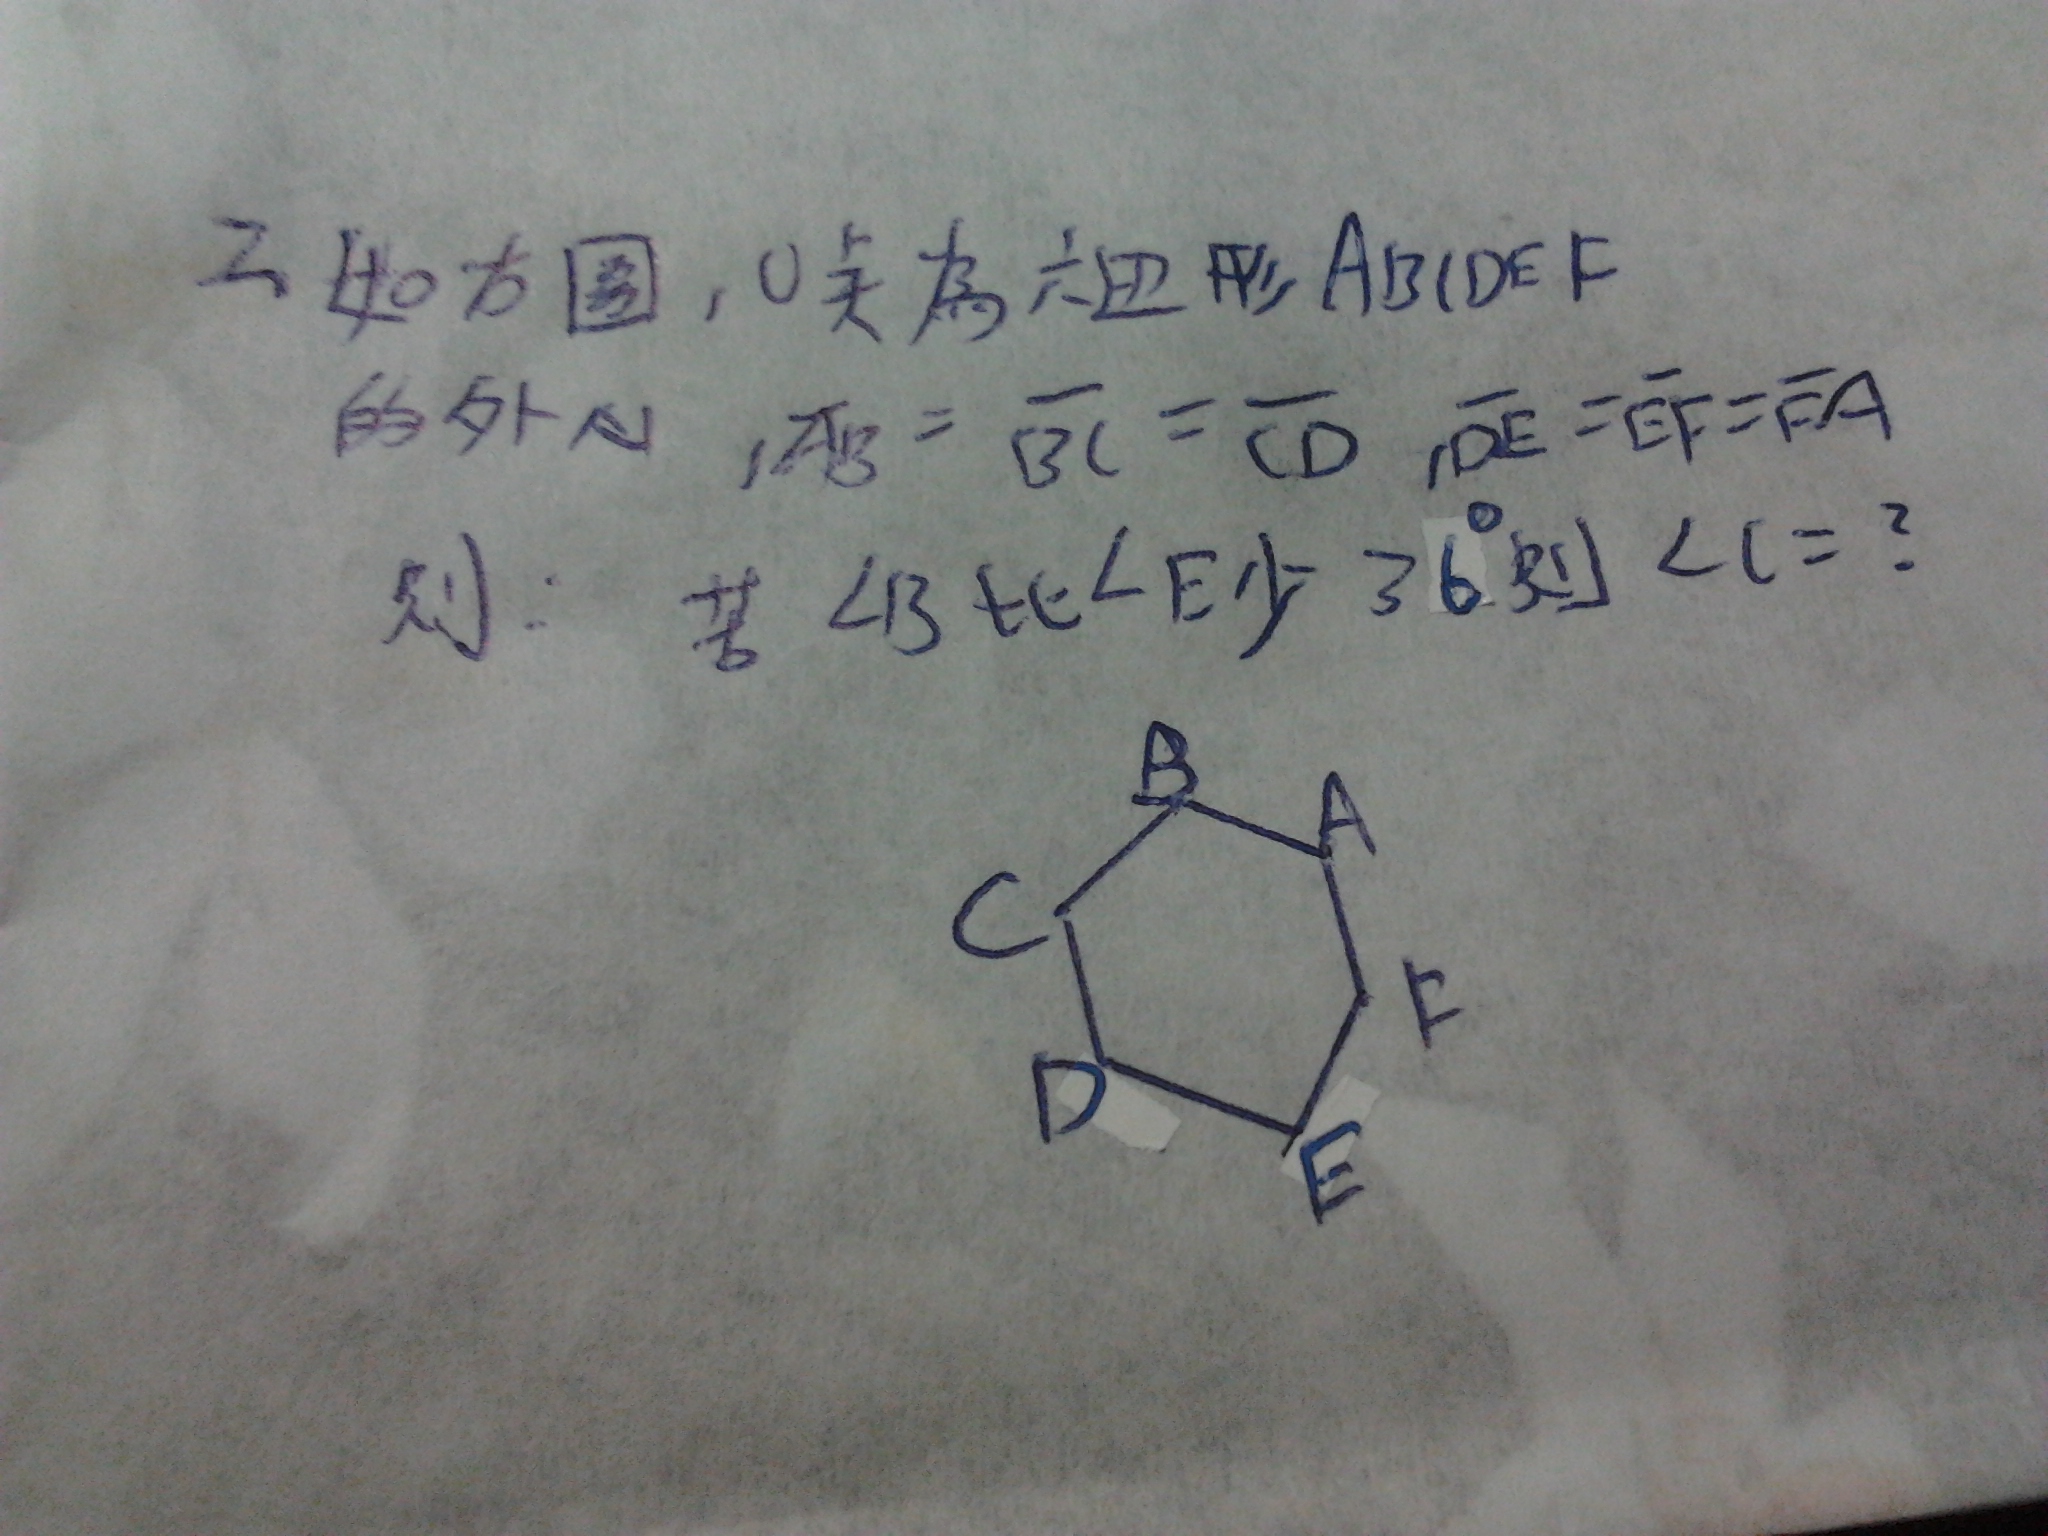 2 如右圖,O點為六邊形ABCDEF
的外心,AB = BC = CD ,DE = EF = FA
則: 若 <B比<E少36°則 <C = ?
B
A
C
F
D
E